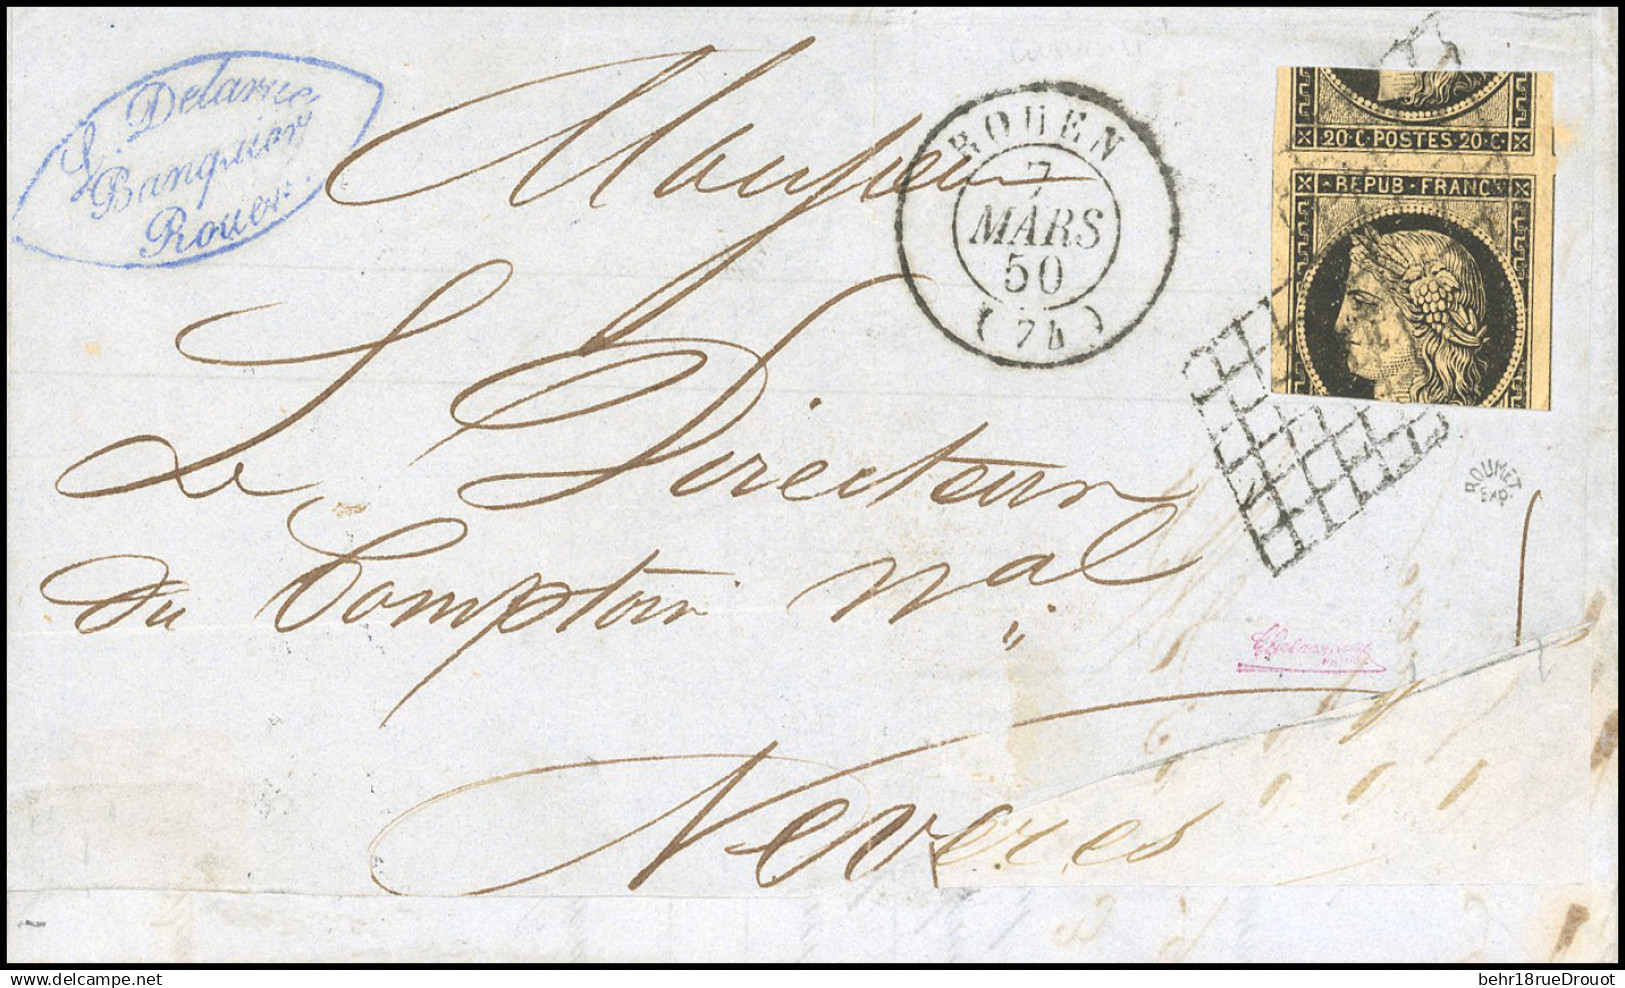 L. Delarue
Banquier
Rouen.
Monsieur
ROUEN
7
MARS
50
(74)
20·C·POSTES·20·C·
REPUB·FRANC
Le Directeur
du Comptoir Nal
Nevers
ROUMET
EXP.
delcampe.net
behr18rueDrouot